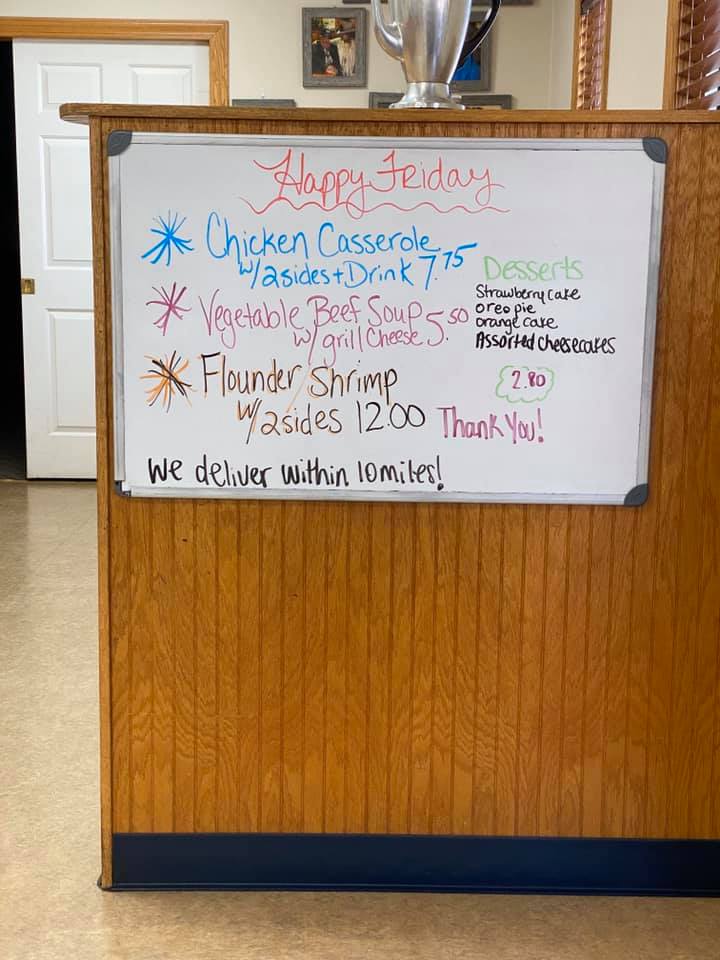 Happy Friday
Chicken Casserole
w/2sides+Drink 7.75
Vegetable Beef Soup
w/grill Cheese 5.50
Flounder/Shrimp
w/2sides 12.00
We deliver within 10miles!
Desserts
Strawberry Cake
oreo pie
orange cake
Assorted cheesecakes
2.80
Thank You!